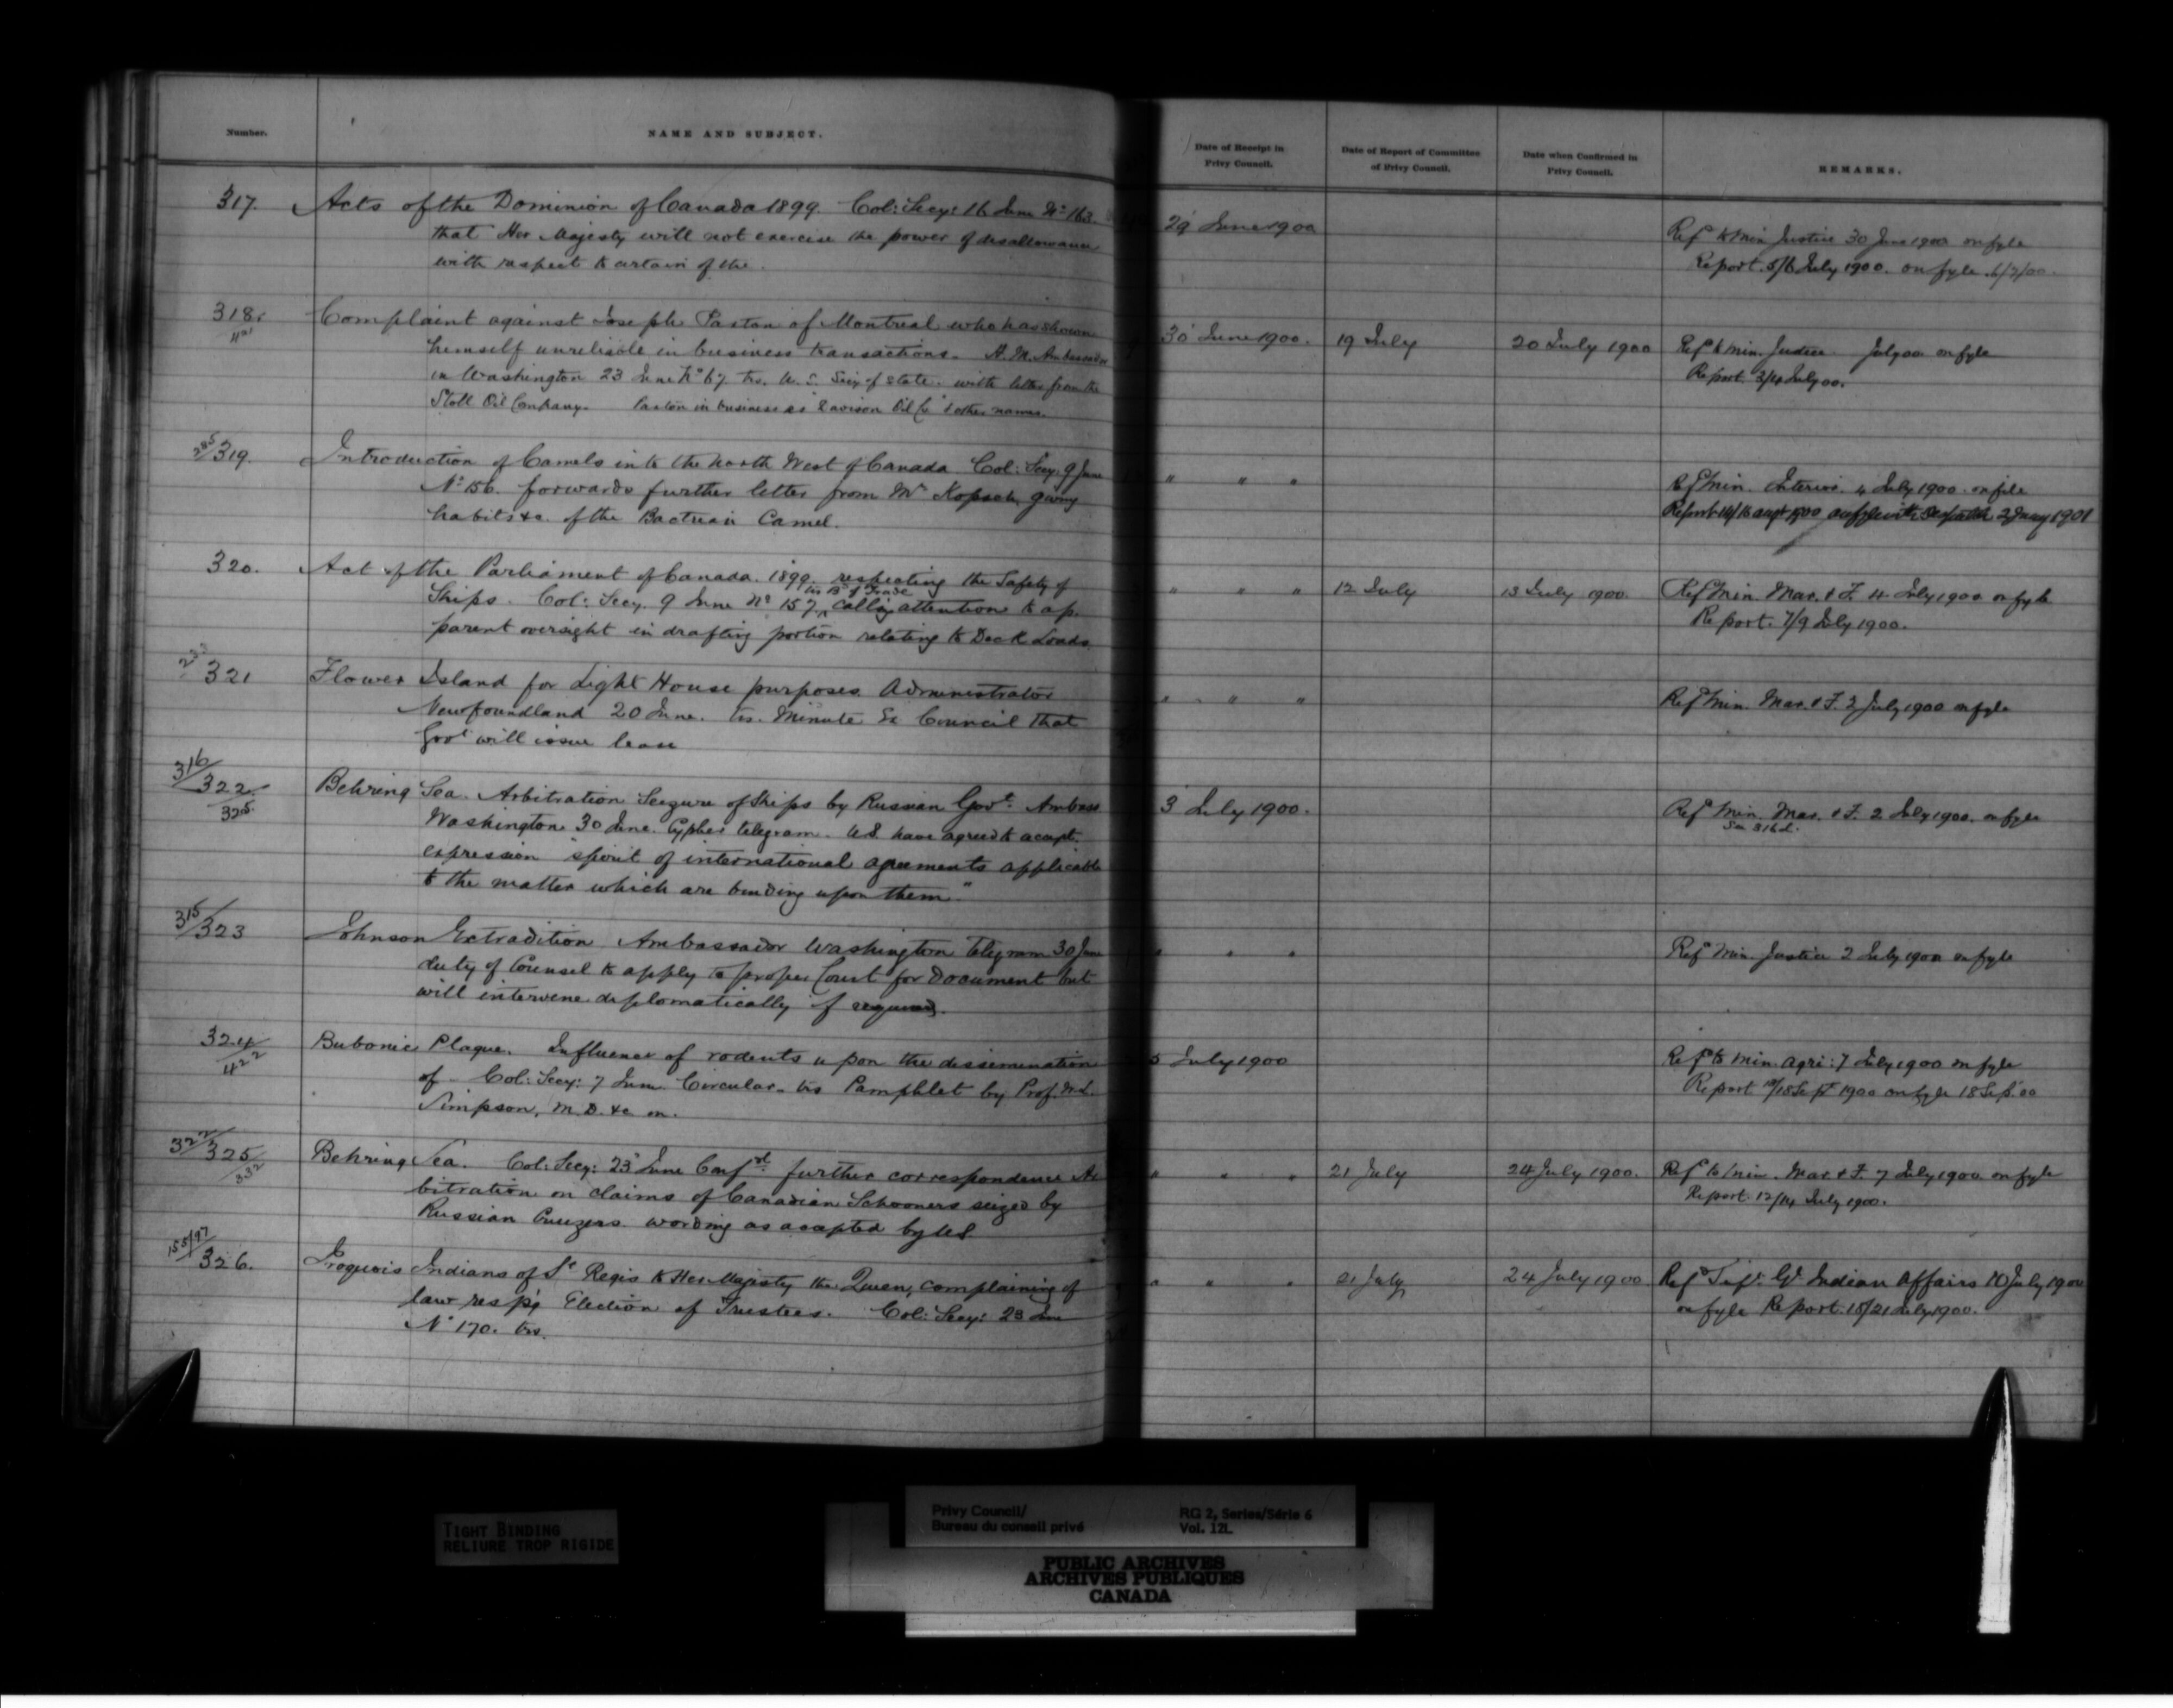 Number.
NAME AND SUBJECT.
Date of Receipt in
Privy Council.
Date of Report of Committee
of Privy Council.
Date when Confirmed in
Privy Council.
REMARKS.
317. Acts of the Dominion of Canada 1899. Col: Secy: 16 June No 163.
that Her Majesty will not exercise the power of disallowance
with respect to certain of the.
29 June 1900
Refd to Min Justice 30 June 1900 on fyle
Report. 5/6 July 1900. on fyle. 6/7/00.
318. Complaint against Joseph Paxton of Montreal who has shown
himself unreliable in business transactions. H. M. Ambassador
in Washington 23 June No 67 trs. U. S. Secy of State. with letter from the
Stoll Oil Company. Paxton in business as "Davison Oil Co" & other names.
30 June 1900.
19 July
20 July 1900
Refd to Min. Justice. July 00 on fyle
Report 3/4 July 00.
285/319. Introduction of Camels into the North West of Canada Col: Secy: 9 June
No 156. forwards further letter from Mr Kopsch, giving
habits &c. of the Bactrian Camel.
" " "
Refd Min. Interior. 4 July 1900. on file
Report 14/16 augt 1900 on fyle with Despatch 2 Jany 1901
320. Act of the Parliament of Canada. 1899. respecting the Safety of
Ships. Col: Secy. 9 June No 157, trs Bd of Trade calling attention to ap-
parent oversight in drafting portion relating to Deck Loads
" " "
12 July
13 July 1900.
Refd Min. Mar. & F. 4 July 1900 on fyle
Report. 7/9 July 1900.
321 Flower Island for Light House purposes. Administrator
Newfoundland 20 June. trs. Minute Ex Council that
Govt will issue lease
" " "
Refd Min. Mar. & F. 3 July 1900 on fyle
316/322/325 Behring Sea. Arbitration Seizure of Ships by Russian Govt. Ambass
Washington 30 June. Cypher telegram. U.S. have agreed to accept.
expression "spirit of international agreements applicable
to the matter which are binding upon them."
3 July 1900.
Refd Min. Mar. & F. 2 July 1900. on fyle
See 316 d.
315/323 Johnson Extradition Ambassador Washington Telegram 30 June
duty of Counsel to apply to proper Court for Document but
will intervene diplomatically if required.
" " "
Refd Min. Justice 2 July 1900 on fyle
324/422 Bubonic Plague. Influence of rodents upon the dissemination
of Col: Secy: 7 June Circular. trs Pamphlet by Prof. W.J.
Simpson, M.D. &c on.
5 July 1900
Refd to Min. Agri: 7 July 1900 on fyle
Report 10/18 Sept 1900 on fyle 18 Sep. 00
322/325/332 Behring Sea. Col: Secy: 23 June Confd. further correspondence Ar
bitration on claims of Canadian Schooners seized by
Russian Cruizers. wording as accepted by US
" " "
21 July
24 July 1900.
Refd to Min. Mar. & F. 7 July 1900. on fyle
Report 12/14 July 1900.
155/97/326. Iroquois Indians of St Regis to Her Majesty the Queen, complaining of
law resp'g Election of Trustees. Col: Secy: 23 June
No 170. trs.
" " "
21 July
24 July 1900
Refd Supt. Gl. Indian Affairs 10 July 1900
on fyle Report. 18/21 July 1900.
TIGHT BINDING
RELIURE TROP RIGIDE
Privy Council/
Bureau du conseil privé
RG 2, Series/Série 6
Vol. 121.
PUBLIC ARCHIVES
ARCHIVES PUBLIQUES
CANADA